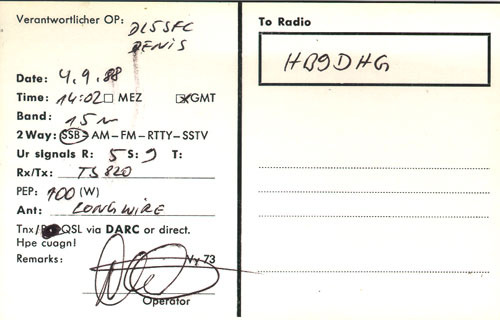 Verantwortlicher OP: DL5SFC
DENIS
Date: 4.9.88
Time: 14:02 MEZ GMT
Band: 15m
2 Way: SSB-AM-FM-RTTY-SSTV
Ur signals R: 5 S: 9 T:
Rx/Tx: TS 820
PEP: 100 (W)
Ant: LONGWIRE
Tnx/ QSL via DARC or direct.
Hpe cuagn!
Remarks: Vy 73
Operator
To Radio
HB9DHG